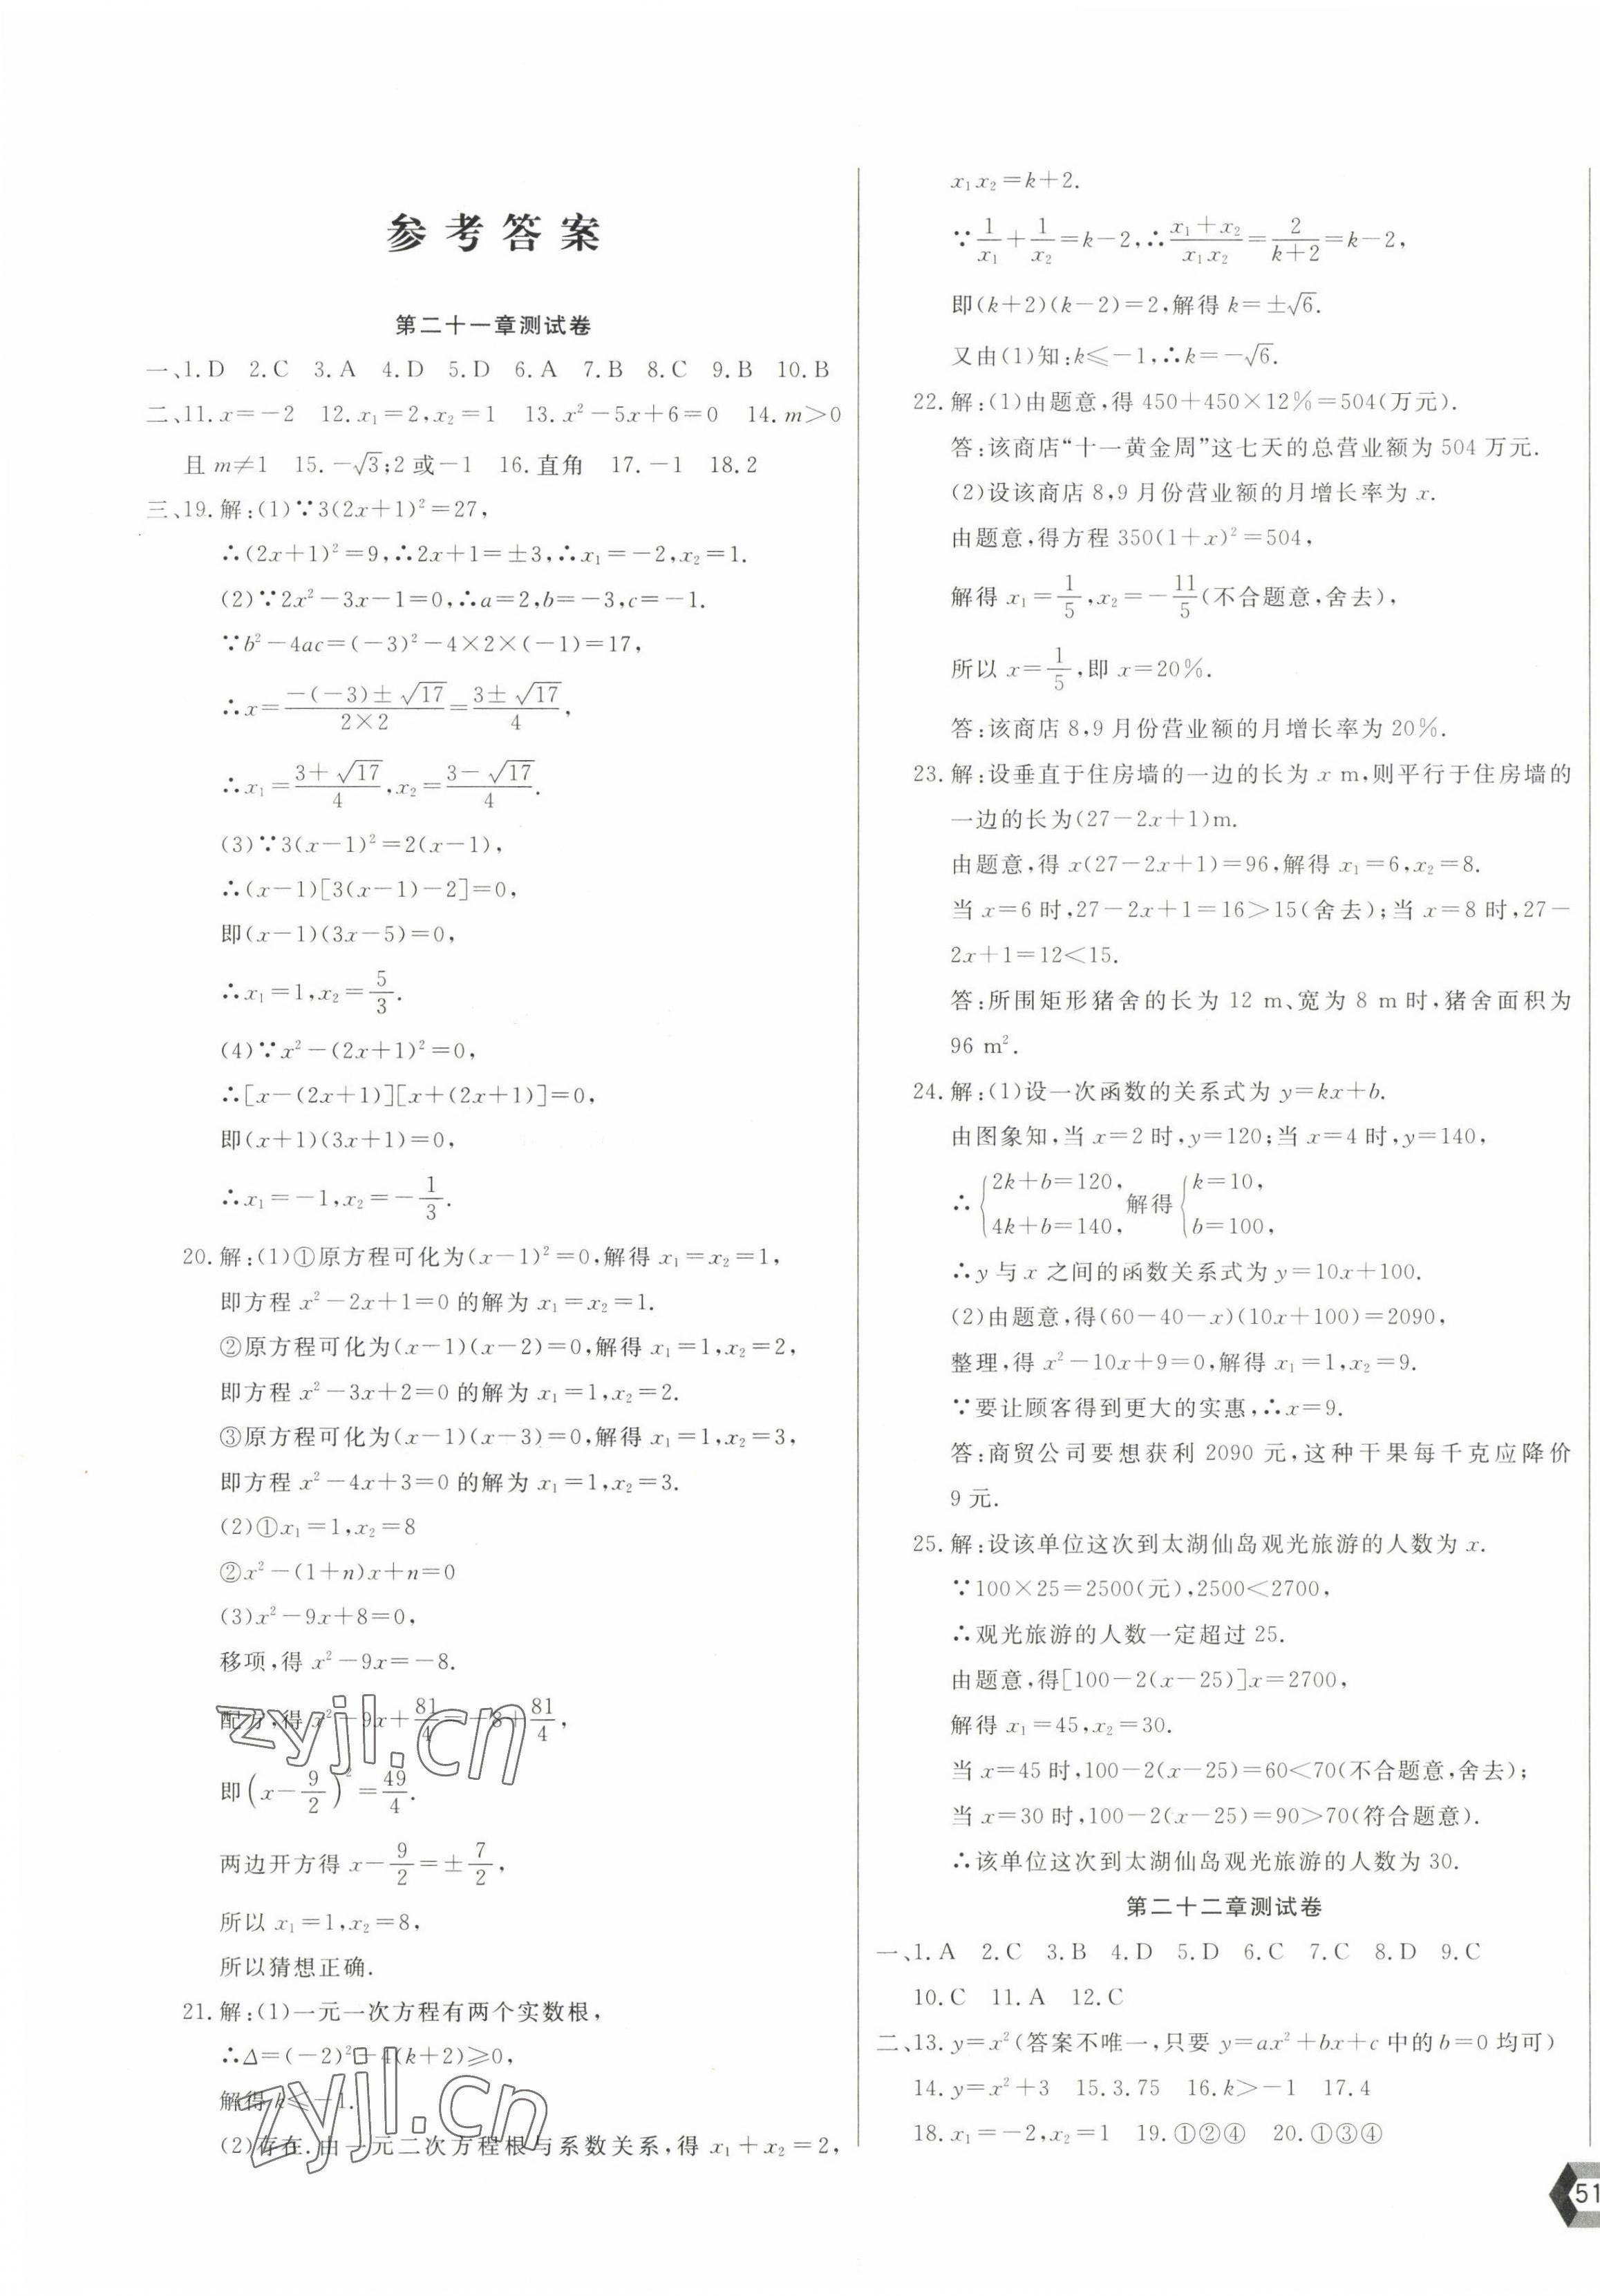 参考答案
第二十一章测试卷
一、1.D 2.C 3.A 4.D 5.D 6.A 7.B 8.C 9.B 10.B
二、11.x=-2 12.x₁=2,x₂=1 13.x²-5x+6=0 14.m>0
且 m≠1 15.-√3;2或-1 16.直角 17.-1 18.2
三、19.解:(1)∵3(2x+1)²=27,
∴(2x+1)²=9,∴2x+1=±3,∴x₁=-2,x₂=1.
(2)∵2x²-3x-1=0,∴a=2,b=-3,c=-1.
∵b²-4ac=(-3)²-4×2×(-1)=17,
∴x=(-(-3)±√17)/(2×2)=(3±√17)/4,
∴x₁=(3+√17)/4,x₂=(3-√17)/4.
(3)∵3(x-1)²=2(x-1),
∴(x-1)[3(x-1)-2]=0,
即(x-1)(3x-5)=0,
∴x₁=1,x₂=5/3.
(4)∵x²-(2x+1)²=0,
∴[x-(2x+1)][x+(2x+1)]=0,
即(x+1)(3x+1)=0,
∴x₁=-1,x₂=-1/3.
20.解:(1)①原方程可化为(x-1)²=0,解得 x₁=x₂=1,
即方程 x²-2x+1=0 的解为 x₁=x₂=1.
②原方程可化为(x-1)(x-2)=0,解得 x₁=1,x₂=2,
即方程 x²-3x+2=0 的解为 x₁=1,x₂=2.
③原方程可化为(x-1)(x-3)=0,解得 x₁=1,x₂=3,
即方程 x²-4x+3=0 的解为 x₁=1,x₂=3.
(2)①x₁=1,x₂=8
②x²-(1+n)x+n=0
(3)x²-9x+8=0,
移项,得 x²-9x=-8.
配方,得 x²-9x+81/4=-8+81/4,
即(x-9/2)²=49/4.
两边开方得 x-9/2=±7/2,
所以 x₁=1,x₂=8,
所以猜想正确.
21.解:(1)一元一次方程有两个实数根,
∴Δ=(-2)²-4(k+2)≥0,
解得 k≤-1.
(2)存在.由一元二次方程根与系数关系,得 x₁+x₂=2,
x₁x₂=k+2.
∵1/x₁+1/x₂=k-2,∴(x₁+x₂)/(x₁x₂)=2/(k+2)=k-2,
即(k+2)(k-2)=2,解得 k=±√6.
又由(1)知:k≤-1,∴k=-√6.
22.解:(1)由题意,得 450+450×12%=504(万元).
答:该商店“十一黄金周”这七天的总营业额为 504 万元.
(2)设该商店 8,9 月份营业额的月增长率为 x.
由题意,得方程 350(1+x)²=504,
解得 x₁=1/5,x₂=-11/5(不合题意,舍去),
所以 x=1/5,即 x=20%.
答:该商店 8,9 月份营业额的月增长率为 20%.
23.解:设垂直于住房墙的一边的长为 x m,则平行于住房墙的
一边的长为(27-2x+1)m.
由题意,得 x(27-2x+1)=96,解得 x₁=6,x₂=8.
当 x=6 时,27-2x+1=16>15(舍去);当 x=8 时,27-
2x+1=12<15.
答:所围矩形猪舍的长为 12 m、宽为 8 m 时,猪舍面积为
96 m².
24.解:(1)设一次函数的关系式为 y=kx+b.
由图象知,当 x=2 时,y=120;当 x=4 时,y=140,
∴{2k+b=120, 4k+b=140, 解得{k=10, b=100,
∴y 与 x 之间的函数关系式为 y=10x+100.
(2)由题意,得(60-40-x)(10x+100)=2090,
整理,得 x²-10x+9=0,解得 x₁=1,x₂=9.
∵要让顾客得到更大的实惠,∴x=9.
答:商贸公司要想获利 2090 元,这种干果每千克应降价
9 元.
25.解:设该单位这次到太湖仙岛观光旅游的人数为 x.
∵100×25=2500(元),2500<2700,
∴观光旅游的人数一定超过 25.
由题意,得[100-2(x-25)]x=2700,
解得 x₁=45,x₂=30.
当 x=45 时,100-2(x-25)=60<70(不合题意,舍去);
当 x=30 时,100-2(x-25)=90>70(符合题意).
∴该单位这次到太湖仙岛观光旅游的人数为 30.
第二十二章测试卷
一、1.A 2.C 3.B 4.D 5.D 6.C 7.C 8.D 9.C
10.C 11.A 12.C
二、13.y=x²(答案不唯一,只要 y=ax²+bx+c 中的 b=0 均可)
14.y=x²+3 15.3.75 16.k>-1 17.4
18.x₁=-2,x₂=1 19.①②④ 20.①③④
51
zyjl.cn
zyjl.cn